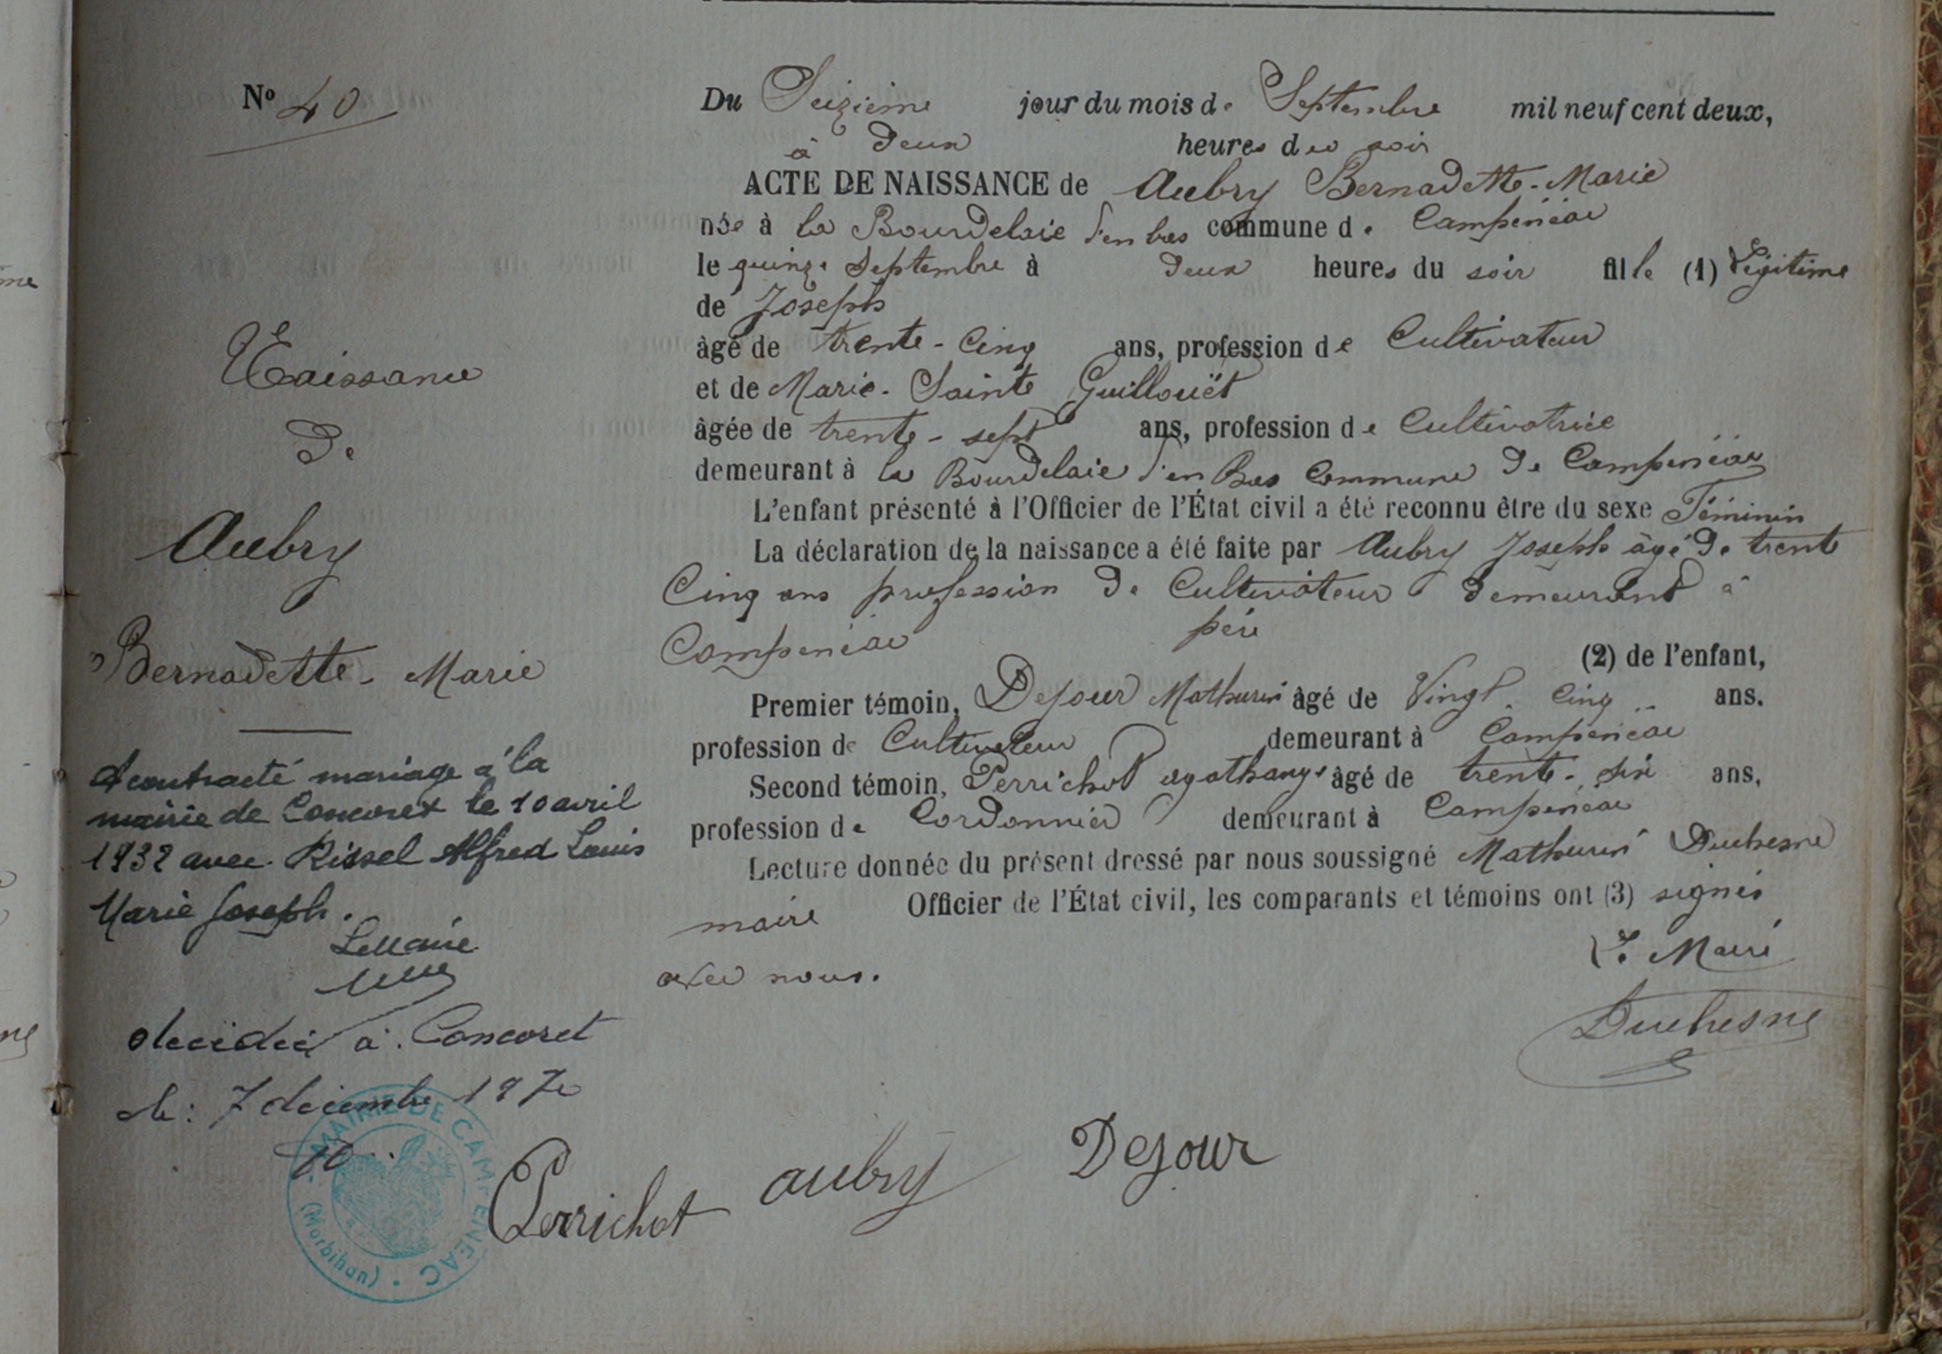 Nº 40
Naissance
De
Aubry
Bernadette-Marie
A contracté mariage à la
mairie de Concoret le 10 avril
1932 avec Rissel Alfred Louis
Marie Joseph.
Le Maire
décédée à Concoret
le: 7 décembre 197
MAIRIE DE CAMPÉNÉAC (Morbihan)
Du Seizième jour du mois de Septembre mil neuf cent deux,
à Deux heures du soir
ACTE DE NAISSANCE de Aubry Bernadette-Marie
née à la Bourdelaie d'en bas commune de Campénéac
le quinze Septembre à Deux heures du soir fille (1) Légitime
de Joseph
âgé de trente-Cinq ans, profession de Cultivateur
et de Marie-Sainte Guillouët
âgée de trente-sept ans, profession de Cultivatrice
demeurant à la Bourdelaie d'en Bas Commune De Campénéac
L'enfant présenté à l'Officier de l'État civil a été reconnu être du sexe Féminin
La déclaration de la naissance a été faite par Aubry Joseph âgé De trente
Cinq ans profession De Cultivateur demeurant à
Campénéac père (2) de l'enfant,
Premier témoin, Dejour Mathurin âgé de Vingt-Cinq ans.
profession de Cultivateur demeurant à Campénéac
Second témoin, Perrichot Agathange âgé de trente-six ans,
profession de Cordonnier demeurant à Campénéac
Lecture donnée du présent dressé par nous soussigné Mathurin Duchesne
maire Officier de l'État civil, les comparants et témoins ont (3) signés
avec nous.
Le Maire
Duchesne
Perrichot aubry Dejour